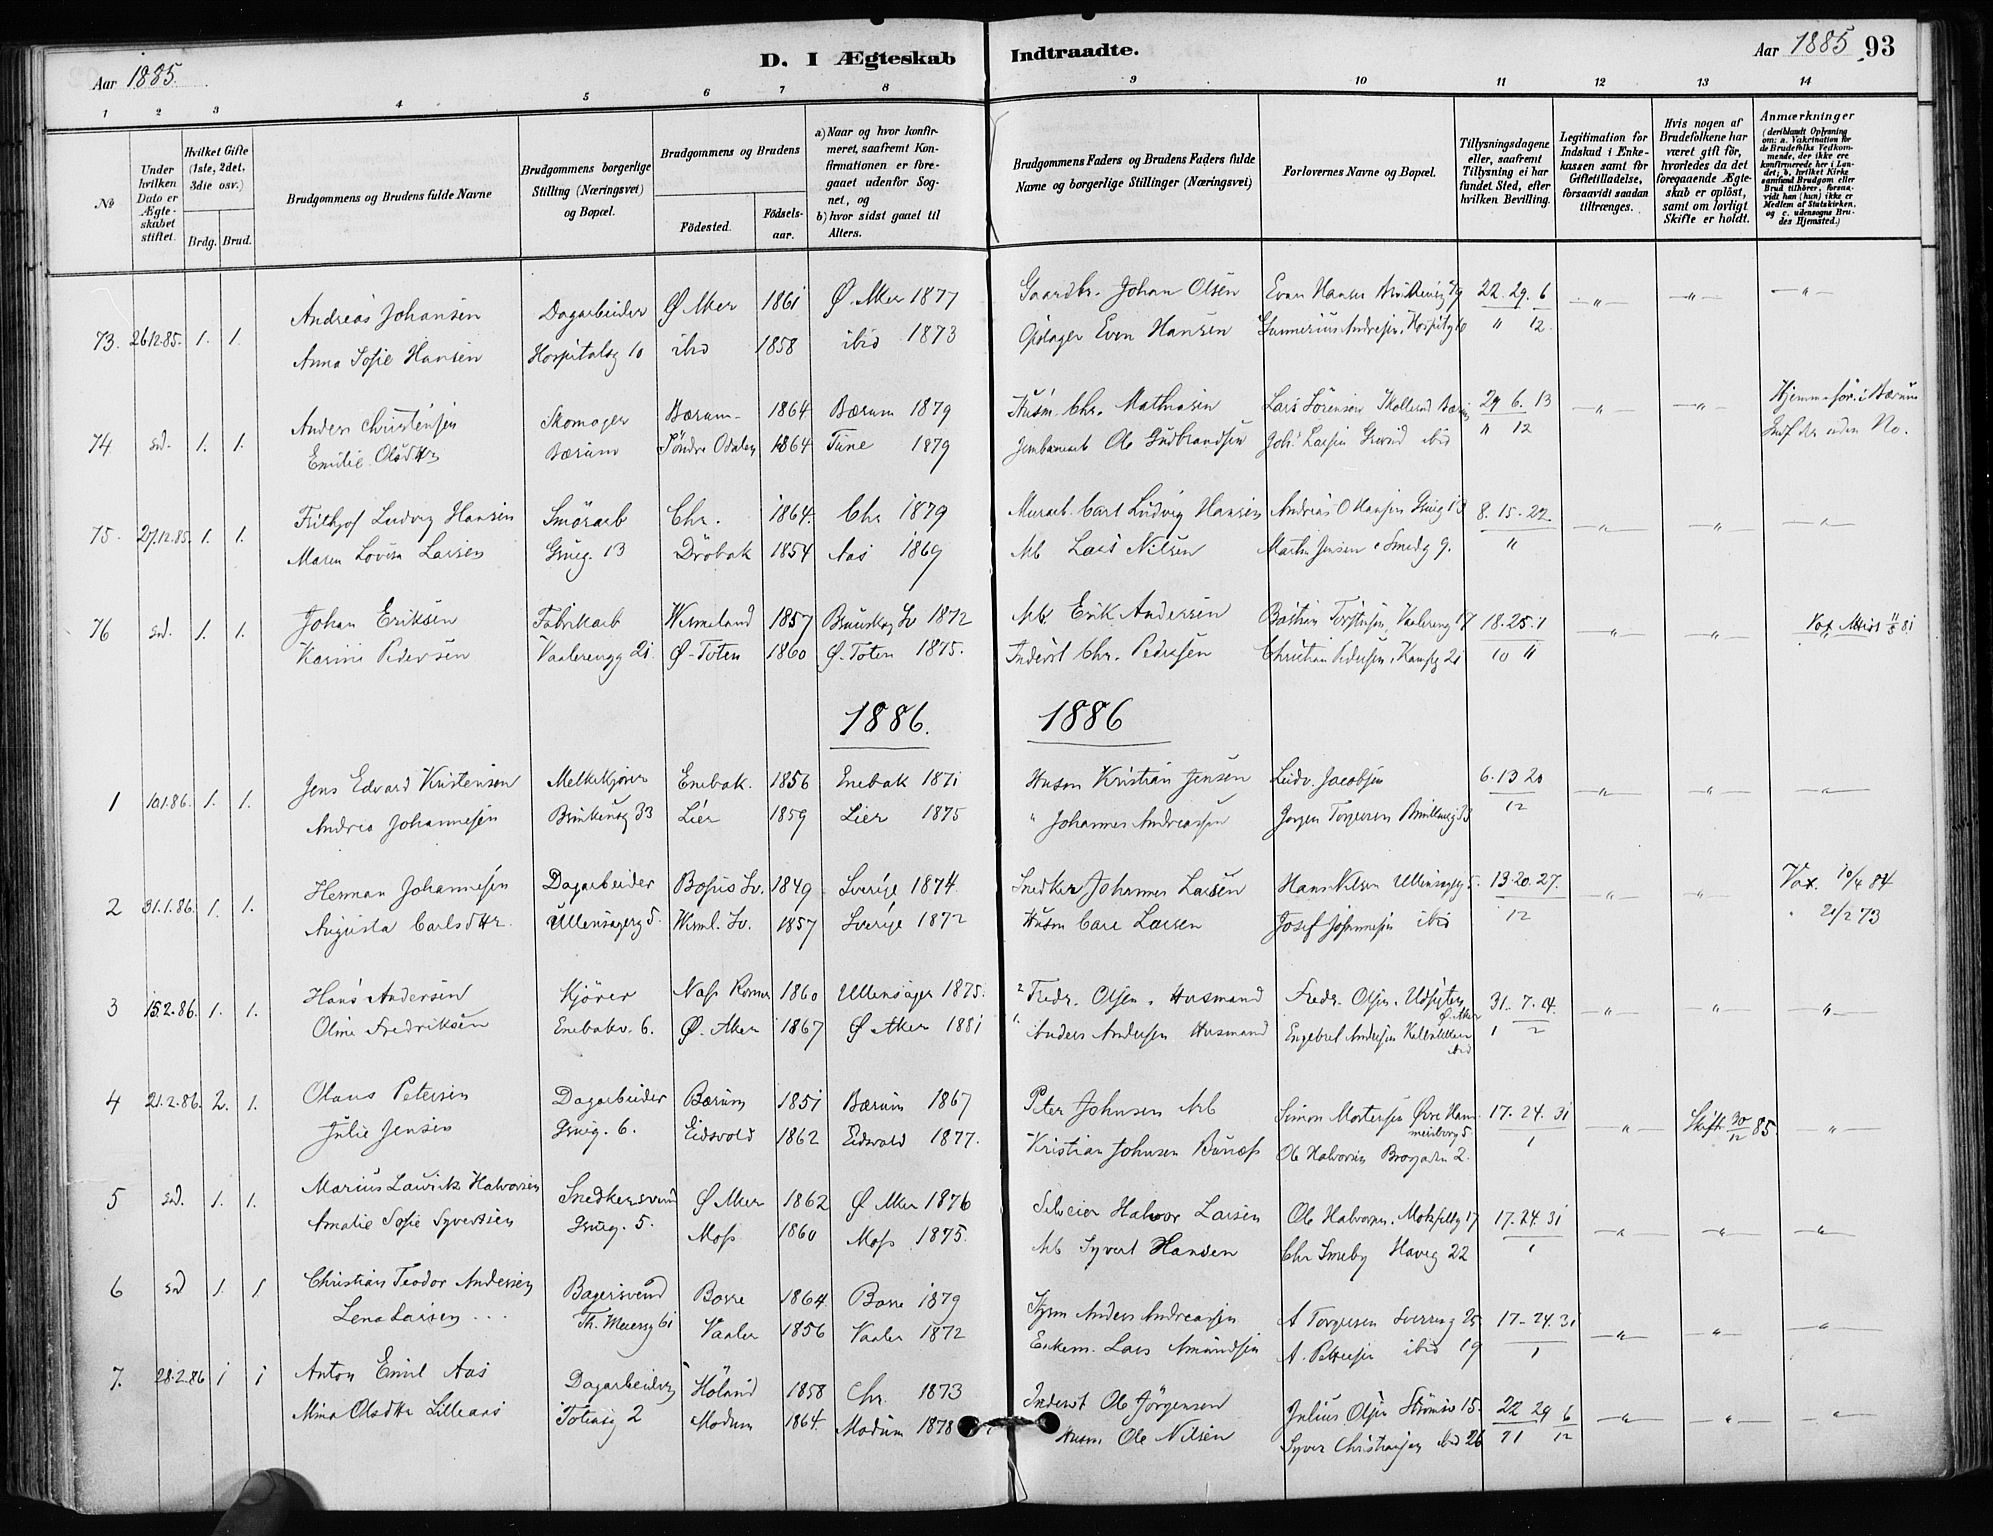 Aar 1885. D. I Ægteskab Indtraadte. Aar 1885 93
1 2 3 4 5 6 7 8 9 10 11 12 13 14
No
Under hvilken Dato er Ægteskabet stiftet.
Hvilket Gifte (1ste, 2det, 3die osv.)
Brdg. Brud.
Brudgommens og Brudens fulde Navne
Brudgommens borgerlige Stilling (Næringsvei) og Bopæl.
Brudgommens og Brudens
Födested. Födselsaar.
a) Naar og hvor konfirmeret, saafremt Konfirmationen er foregaaet udenfor Sognet, og
b) hvor sidst gaaet til Alters.
Brudgommens Faders og Brudens Faders fulde Navne og borgerlige Stillinger (Næringsvei)
Forlovernes Navne og Bopæl.
Tillysningsdagene eller, saafremt Tillysning ei har fundet Sted, efter hvilken Bevilling.
Legitimation for Indskud i Enkekassen samt for Giftetilladelse, forsaavidt saadan tiltrænges.
Hvis nogen af Brudefolkene har været gift før, hvorledes da det foregaaende Ægteskab er oplöst, samt om lovligt Skifte er holdt.
Anmærkninger
(deriblandt Oplysning om: a. Vakcination for de Brudefolks Vedkommende, der ikke ere konfirmerede her i Landet; b. hvilket Kirkesamfund Brudgom eller Brud tilhører, forsaavidt han (hun) ikke er Medlem af Statskirken, og c. udensogns Brudes Hjemsted.)
73. 26.12.85. 1. 1. Andreas Johansen Dagarbeider Ø. Aker 1861 Ø. Aker 1877 Gaardbr. Johan Olsen Even Hansen 22. 29. 6
Anna Sofie Hansen Hospitalsg 10 ibid 1858 ibid 1873 Even Hansen Gunnerius Andresen, Hospitsg 10 " 12.
74 sd. 1. 1. Anders Christensen Skomager Bærum 1864 Bærum 1879 Husm. Chr. Mathisen Lars Sörensen 29 6. 13
Emilie Olsdttr Bærum Söndre Odalen 1864 Tune 1879 Jernbanearb Ole Gudbrandsen Joh. Larsen ibid " 12
75. 27.12.85. 1. 1. Frithjof Ludvig Hansen Smörarb Chr. 1864. Chr 1879 Murarb. Carl Ludvig Hansen Andreas O Hansen Grüg 13 8. 15. 22.
Maren Lovisa Larsen Grüg. 13 Dröbak 1854 Aas 1869 Arb Lars Nilsen Martin Jensen Smedg 9. "
76 sd. 1. 1. Johan Eriksen Fabrikarb Wermeland 1857 1872 Arb. Erik Andersen Bastian Torstensen, Vaalereng 17 18. 25. 1
Karine Pedersen Vaalerengg 21 Ø. Toten 1860 Ø. Toten 1875. Inderst Chr. Pedersen Christian Pedersen, Kampg 21 10 11
1886. 1886
1 10.1.86. 1. 1. Jens Edvard Kristensen Melkekjörer Enebak. 1856 Enebak 1871 Husm Kristian Jensen Ludv. Jacobsen 6. 13 20
Andrea Johannesen Brinkensg 33 Lier 1859 Lier 1875 " Johannes Andreassen Jorgen Torgersen 12
2 31.1.86. 1. 1. Herman Johannesen Dagarbeider Bohus Sv. 1849 Sverige 1874. Snedker Johannes Larsen Hans Nilsen Ullensagerg 5. 13. 20. 27. Vax. 10/4 84
Augusta Carlsdttr. Ullensagerg 5. Werml. Sv. 1857 Sverige 1872 Husm Carl Larsen Josef Johannesen ibid 12 " 21/2 73
3 15.2.86. 1. 1. Hans Andersen Kjörer 1860 Ullensager 1875. Fredr. Olsen, Husmand Fredr. Olsen, 31. 7. 14.
Oline Fredriksen Enebakv. 6. Ø. Aker 1867 Ø Aker 1881 Anders Andersen Husmand Engebret Andersen 1 2
4 21.2.86. 2. 1. Olaus Petersen Dagarbeider Bærum 1851 Bærum 1867 Peter Johnsen Arb Simon Mortensen Øvre 17. 24. 31 Skifte 30/12 85.
Julie Jensen Grüg. 6. Eidsvold 1862 Eidsvold 1877. Kristian Johnsen Ole Halvorsen 2. 1
5 sd. 1. 1. Marius Lauritz Halvorsen Snedkersvend Ø Aker 1862 Ø Aker 1876 Halvor Larsen Ole Halvorsen. 17 17. 24. 31
Amalie Sofie Syvertsen Grüg. 5. Moss 1860 Moss 1875. Arb Syvert Hansen Chr Smeby Haveg 22 1
6 sd 1. 1 Christian Teodor Andersen Bagersvend Borre 1864 Borre 1879 Anders Andreassen A Torgersen 25 17. 24. 31
Lena Larsen Th. Meiersg 61 Vaaler 1856 Vaaler 1872 Lars Amundsen A. Pettersen ibid 19 1
7. 28.2.86 1 1 Anton Emil Aas Dagarbeider Höland 1858 Chr. 1873 Inderst Ole Jörgensen Julius Olsen 15. 22 29 6
Mina Olsdttr Lilleaas Toteng 2 Modum 1864. Modum 1878 Husm Ole Nilsen Syver Christiansen ibid 26 11 12